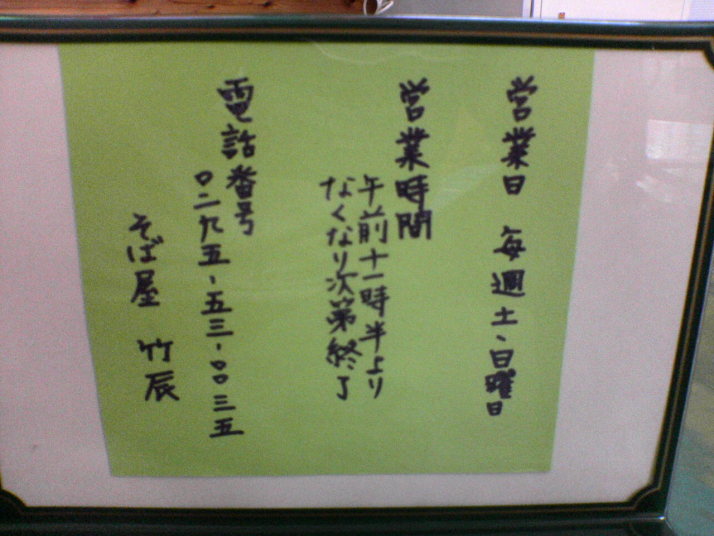 営業日 毎週土、日曜日
営業時間
午前十一時半より
なくなり次第終了
電話番号
〇二九五、五三、〇〇三五
そば屋 竹辰